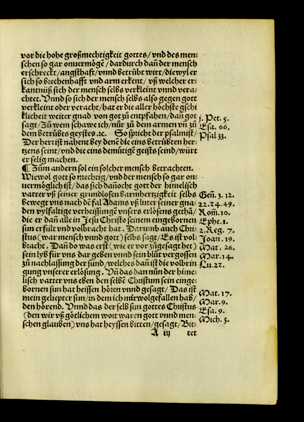 vor die hohe großmechtigkeit gottes/ vnd des men-
schen so gar onuermögẽ/ dardurch dañ der mensch
erschreckt/ angsthafft/ vnnd betrübt wirt/ die weyl er
sich so brechenhafft vnd arm erkent/ vß welcher er-
kantnüß sich der mensch selbs verkleint vnnd verach-
tet. Vnnd so sich der mensch selbs also gegen gott
verkleint oder veracht/ hat er die aller höchste gschick-
licheit weiter gnad von got zů entpfahen/ dañ got
sagt/ Zů wem schawe ich/ nůr zů dem armen vñ zů
dem betrübtẽ geystes ⁊c. So spricht der psalmist/
Der herr ist nahent bey denẽ die eins betrübten her-
tzens seint/ vnd die eins demütigẽ geists seind/ würt
er selig machen.
¶ Zům andern sol ein solcher mensch betrachten.
Wiewol gott so mechtig/ vnd der mensch so gar on-
vermöglich ist/ das sich dañocht gott der himelisch
vatter vß seiner grundtlosen barmhertzigkeit selbs
bewegt vns nach dẽ fal Adams vß luter seiner gna-
den vylfaltige verheissungẽ vnsers erlösens gethã/
die er dañ alle in Jesu Christo seinem eingebornen
sun erfült vnd volbracht hat. Darumb auch Chri-
stus (war mensch vnnd gott) selbs sagt/ Es ist vol-
bracht. Dañ do was es erst/ wie er vor gesagt hat/
sein lyb für vns dar geben vnnd sein blůt vergossen
zů nachlassung der sünd/ welches dañ ist die volbrin-
gung vnserer erlösung. Vñ das dañ nũn der hime-
lisch vatter vns eben den selbẽ Christum sein einge-
bornen sun hat heissen hören vnnd gesagt/ Das ist
mein geliepter sun/ in dem ich mir wolgefallen hab/
den hörend. Vnnd das der selb sun gottes Christus
(den wir vß götlichem wort waren gott vnnd men-
schen glauben) vns hat heyssen bitten/ gesagt/ Bit-
A iij tet
1. Pet. 5.
Esa. 66.
Psal. 33.
Geñ. 3. 12.
22. 24. 49.
Rom. 10.
Ephe. 1.
2. Reg. 7.
Joan. 19.
Mat. 26.
Mar. 14.
Lu. 22.
Mat. 17.
Mar. 9.
Esa. 9.
Mich. 5.